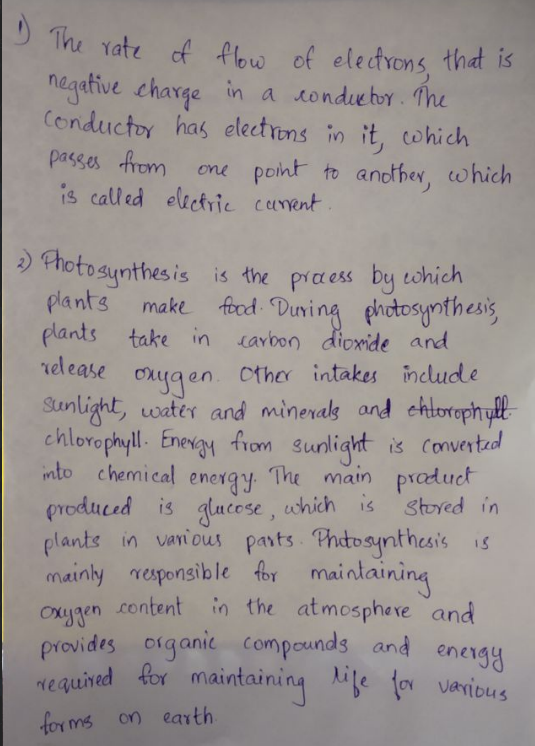 1) The rate of flow of electrons, that is
negative charge in a conductor. The
conductor has electrons in it, which
passes from one point to another, which
is called electric current.
2) Photosynthesis is the process by which
plants make food. During photosynthesis,
plants take in carbon dioxide and
release oxygen. Other intakes include
sunlight, water and minerals and chlorophyll.
chlorophyll. Energy from sunlight is converted
into chemical energy. The main product
produced is glucose, which is stored in
plants in various parts. Photosynthesis is
mainly responsible for maintaining
oxygen content in the atmosphere and
provides organic compounds and energy
required for maintaining life for various
forms on earth.